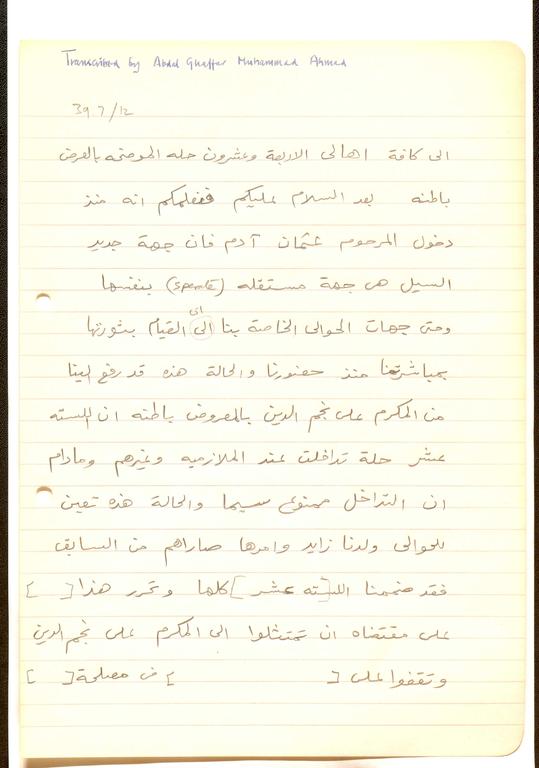 Transcribed by Abdel Ghaffar Muhammad Ahmed
39.7/12
الى كافة اهالى الاربعة وعشرون حله الموضحه بالعرض
باطنه بعد السلام عليكم فنعلمكم انه منذ
دخول المرحوم عثمان آدم فان جهة جديد
السيل هى جهة مستقله (separate) بنفسها
وحتى جهات الحوالى الخاصة بنا الى اى القيام بثورتها
بمباشرتنا منذ حضورنا والحالة هذه قد رفع الينا
من المكرم على نجم الدين بالمعروض باطنه ان السته
عشر حلة تداخلت عند الملازميه وغيرهم ومادام
ان التداخل ممنوع سيما والحالة هذه تعين
للحوالى ولدنا زايد وامرها صاراهم من السابق
فقد ضممنا [السته عشر] كلها وتحرر هذا [ ]
على مقتضاه ان تمتثلوا الى المكرم على نجم الدين
وتقفوا على [ ] فى مصلحة [ ]